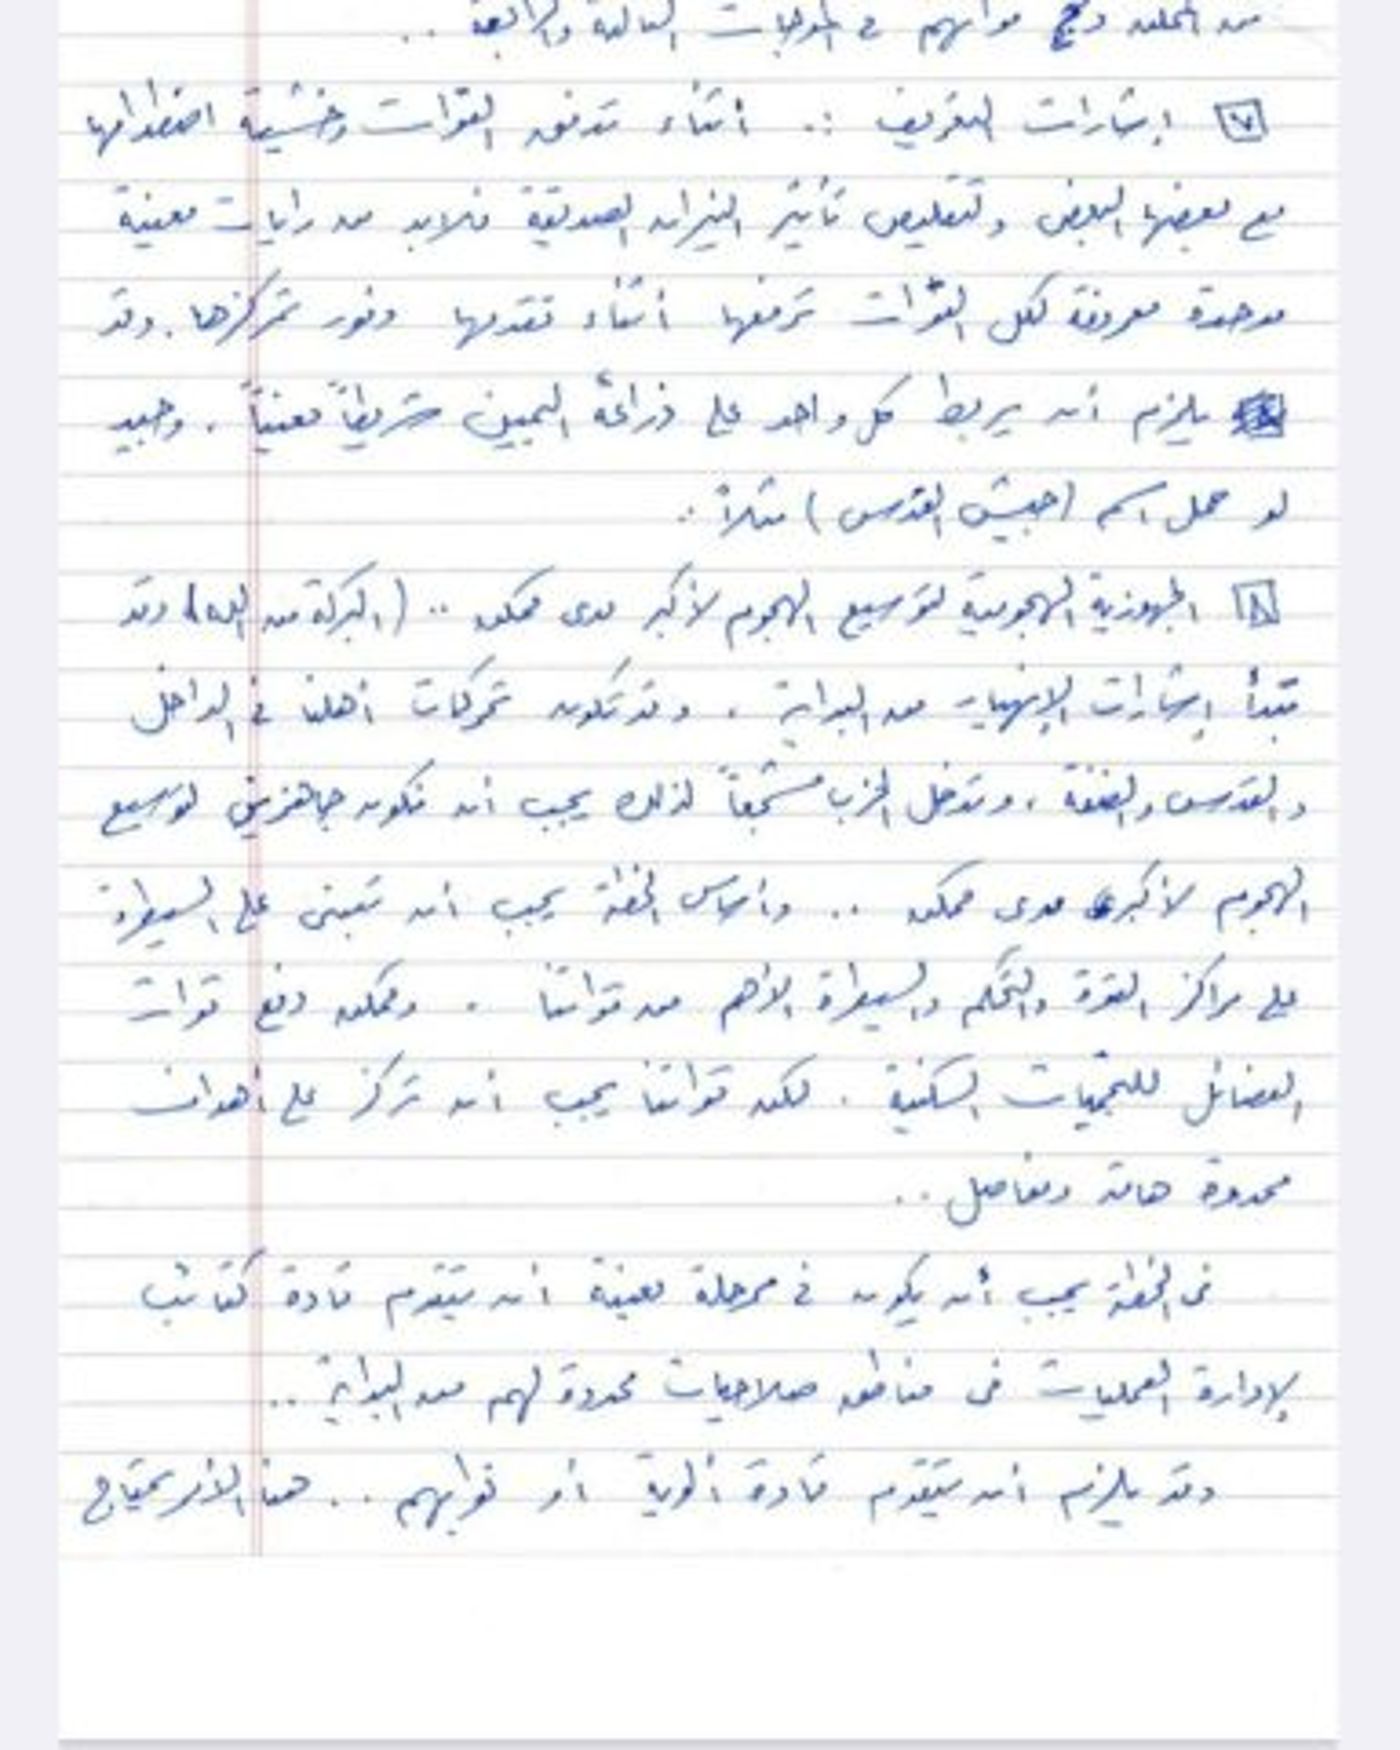 من الخلف ودمج قواتهم في الموجات الثالثة والرابعة ..
٧ إشارات التعريف :. أثناء تدفق القوات وخشية اصطدامها
مع بعضها البعض ولتقليص تأثير النيران الصديقة فلابد من رايات معينة
موحدة معروفة لكل القوّات ترفعها أثناء تقدمها وفور تمركزها. وقد
يلزم أن يربط كل واحد على ذراعه اليمين شريطاً معيناً . وحبيذ
لو حمل اسم (جيش القدس) مثلاً :
٨ الجهوزية الهجومية لتوسيع الهجوم لأكبر مدى ممكن .. (البركة من الله) وقد
تبدأ إشارات الإنهيار من البداية . وقد تكون تحركات أهلنا في الداخل
والقدس والضفة ، وتدخل الحزب مشجعاً لذلك يجب أن نكون جاهزين لتوسيع
الهجوم لأكبر مدى ممكن .. وأساس الخطة يجب أن تبنى على السيطرة
على مراكز القوة والتحكم والسيطرة الأهم من قواتنا . وممكن دفع قوات
الفصائل للتجمعات السكنية . لكن قواتنا يجب أن تركز على أهداف
محددة هامة ومفاصل ..
في الخطة يجب أن يكون في مرحلة معينة أن يتقدم قادة كتائب
لإدارة العمليات في مناطق صلاحيات محددة لهم من البداية ..
وقد يلزم أن يتقدم قادة ألوية أو نوابهم .. هذا الأمر يحتاج